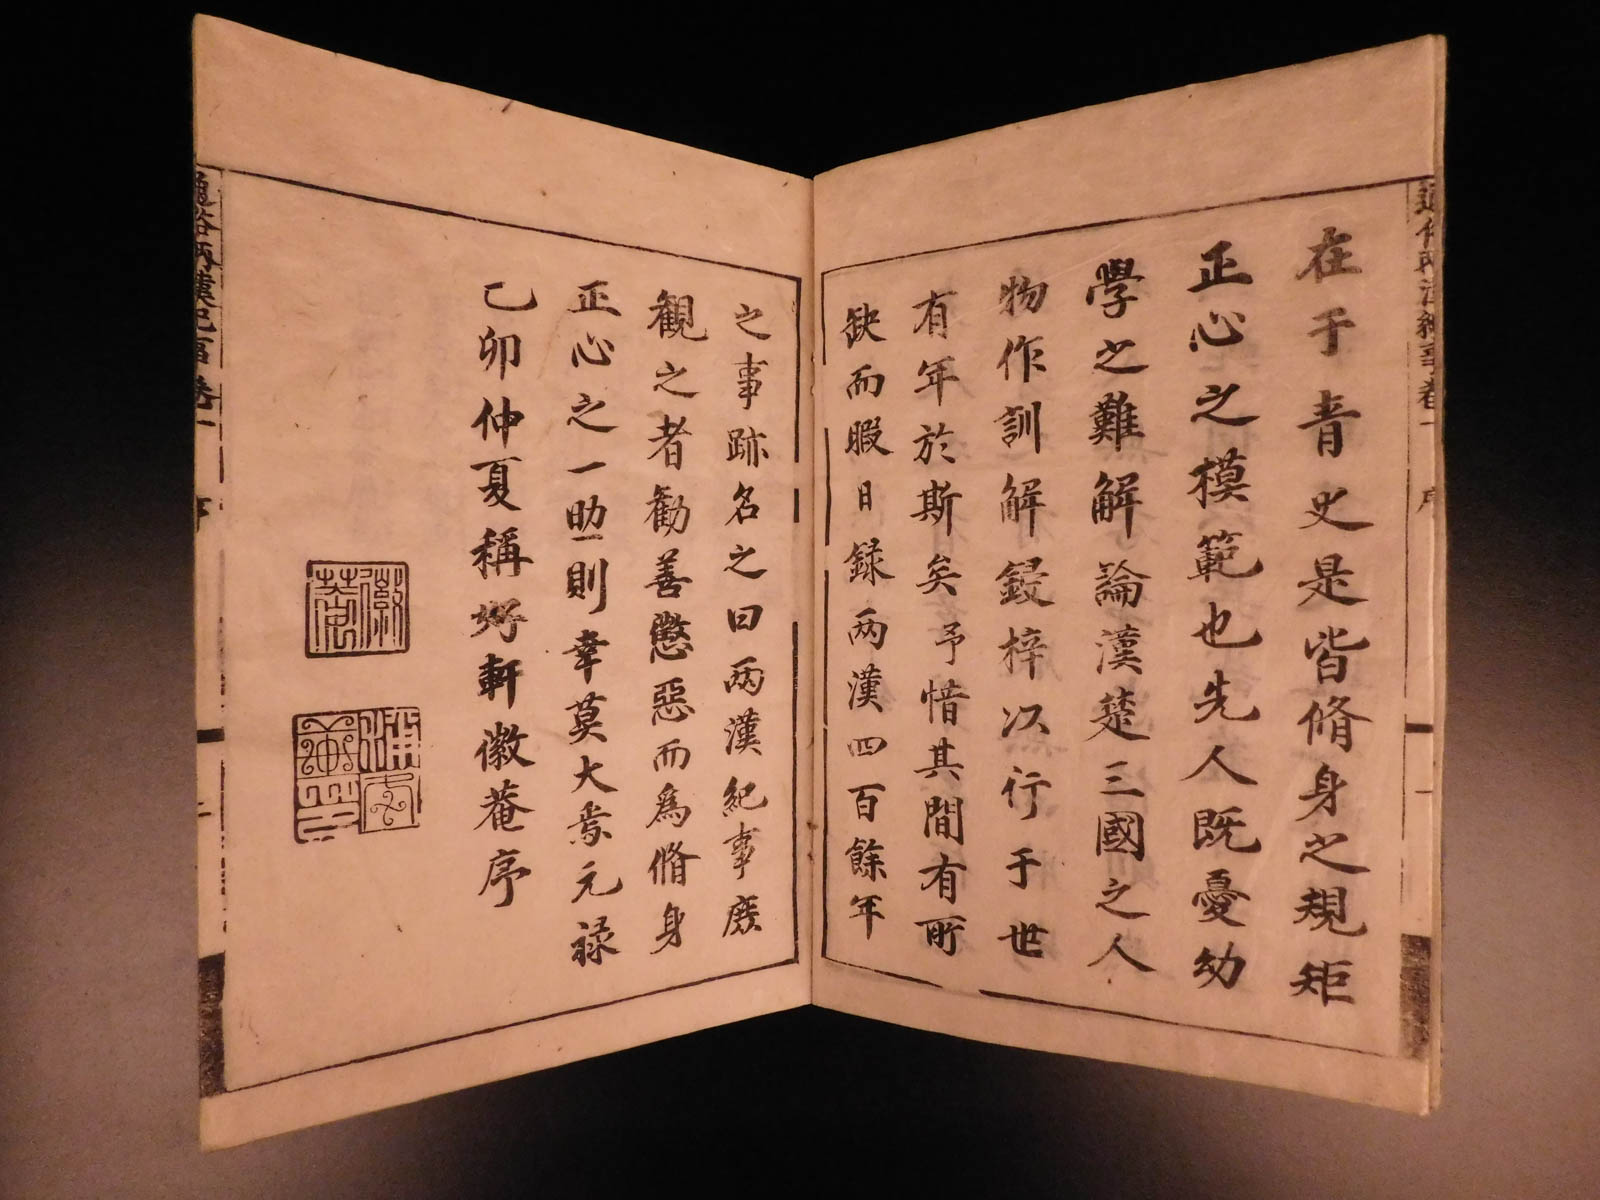 在于青史是皆脩身之規矩
正心之模範也先人既憂幼
學之難解論漢楚三國之人
物作訓解鋟梓以行于世
有年於斯矣予惜其間有所
缺而暇日録两漢四百餘年
之事跡名之曰两漢紀事庻
観之者勸善懲惡而為脩身
正心之一助則幸莫大焉元禄
乙卯仲夏稱好軒徽菴序
通俗两漢紀事卷一
序
一
通俗两漢紀事卷一
序
二